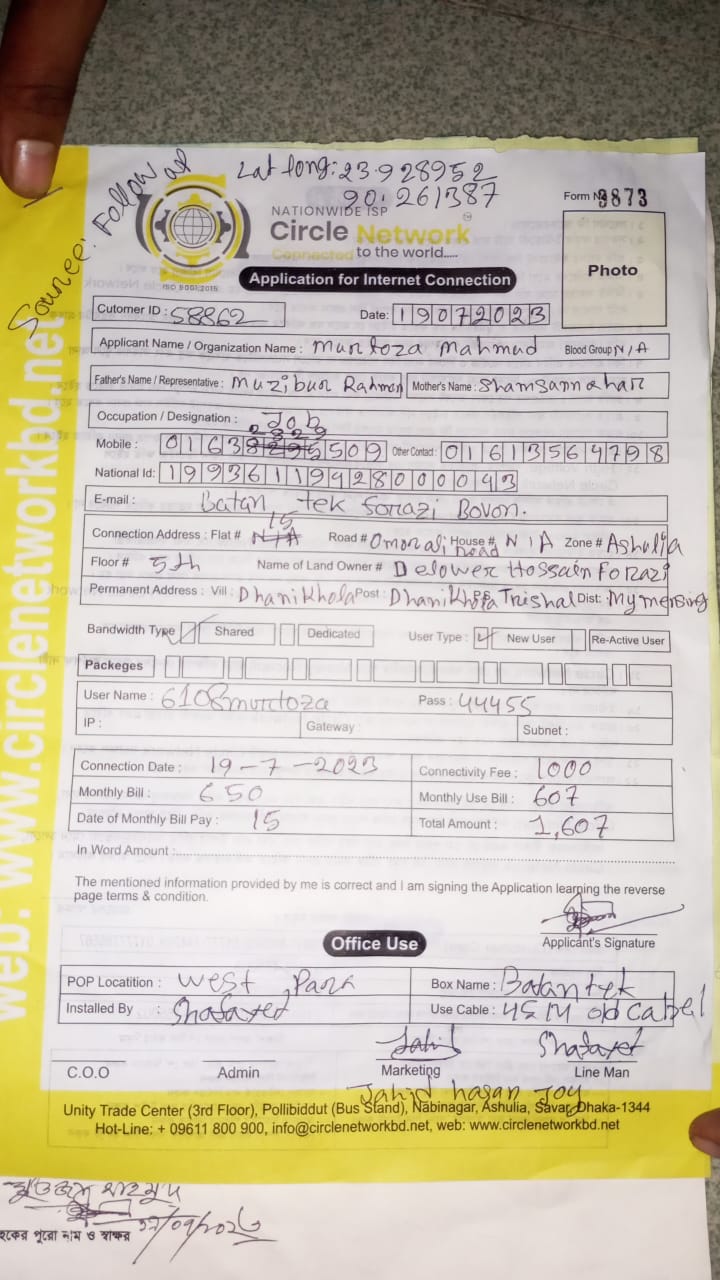 Lat long: 23.928952
90.261387
Source: Follow at
NATIONWIDE ISP
Circle Network
Connected to the world.....
ISO 9001:2015
Form No 3873
Photo
Application for Internet Connection
Cutomer ID : 58862 Date: 19072023
Applicant Name / Organization Name : Murtoza Mahmud Blood Group N/A
Father's Name / Representative : Muzibur Rahman Mother's Name : Shamsannahar
Occupation / Designation : Job
2829
Mobile : 01638295509 Other Contact : 01613564798
National Id: 19936119428000043
E-mail : Batan tek Forazi Bovon.
15
Connection Address : Flat # N/A Road # Omor ali Road House # N/A Zone # Ashulia
Floor # 5th Name of Land Owner # Delower Hossain Forazi
Permanent Address : Vill : Dhanikhola Post : Dhanikhola Trishal Dist: Mymensing
Bandwidth Type Shared Dedicated User Type : New User Re-Active User
Packeges
User Name : 6108murtoza Pass : 44455
IP : Gateway : Subnet :
Connection Date : 19-7-2023 Connectivity Fee : 1000
Monthly Bill : 650 Monthly Use Bill : 607
Date of Monthly Bill Pay : 15 Total Amount : 1,607
In Word Amount :
The mentioned information provided by me is correct and I am signing the Application learning the reverse
page terms & condition.
Applicant's Signature
Office Use
POP Locatition : West Park Box Name : Batantek
Installed By : Shafayet Use Cable : 45 M old Cabel
Jahid Shafayet
C.O.O Admin Marketing Line Man
Jahid hasan Joy
Unity Trade Center (3rd Floor), Pollibiddut (Bus Stand), Nabinagar, Ashulia, Savar, Dhaka-1344
Hot-Line: + 09611 800 900, info@circlenetworkbd.net, web: www.circlenetworkbd.net
web: www.circlenetworkbd.net
মুর্তজা মাহমুদ
হকের পুরো নাম ও স্বাক্ষর